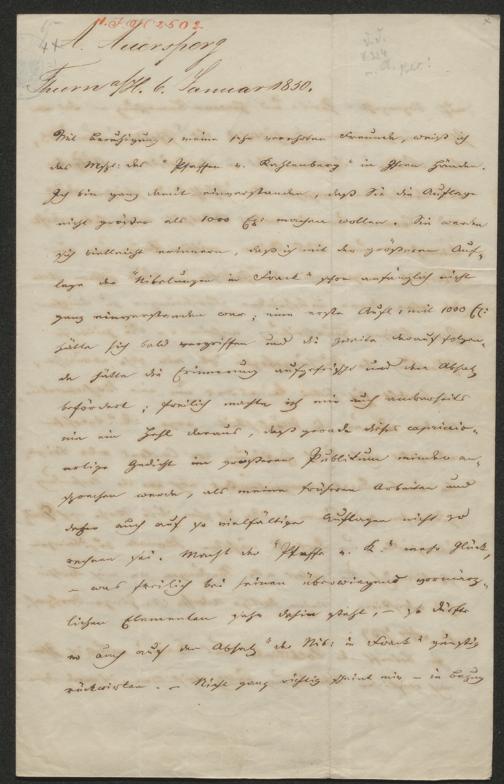 A. Auersperg
Thurn a/H. 6. Januar 1850.
Mit Beruhigung, meine sehr verehrten Freunde, weiß ich
das Mspt: des "Pfaffen v. Kahlenberg" in Ihren Händen.
Ich bin ganz damit einverstanden, daß Sie die Auflage
nicht größer als 1000 Ex: machen wollen. Sie werden
sich vielleicht erinnern, daß ich mit der größeren Auf-
lage der "Nibelungen im Frack" schon anfänglich nicht
ganz einverstanden war; eine erste Aufl: mit 1000 Ex:
hätte sich bald vergriffen und die zweite darauf folgen-
de hätte die Erinnerung aufgefrischt und den Absatz
befördert; freilich machte ich mir auch andrerseits
nie ein Hehl daraus, daß gerade dieses capriccio-
artige Gedicht im größeren Publikum minder an-
sprechen werde, als meine früheren Arbeiten und
daher auch auf so vielfältige Auflagen nicht zu
rechnen sei. Macht der "Pfaffe v. K." mehr Glück,
– was freilich bei seinen überwiegend vormärz-
lichen Elementen sehr dahin steht, – so dürfte
er auch auf den Absatz "der Nib: im Frack" günstig
rückwirken. – Nicht ganz richtig scheint mir – in Bezug